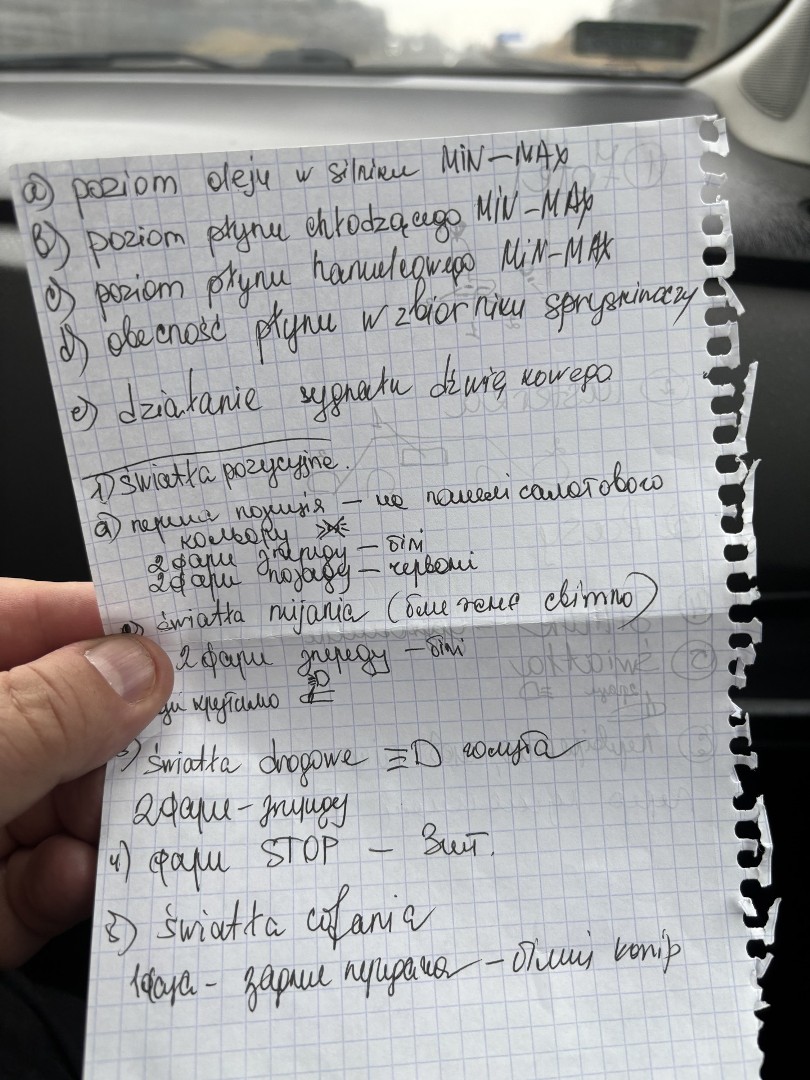 a) poziom oleju w silniku MIN-MAX
b) poziom płynu chłodzącego MIN-MAX
c) poziom płynu hamulcowego MIN-MAX
d) obecność płynu w zbiorniku spryskiwaczy
e) działanie sygnału dźwiękowego
1) światła pozycyjne.
a) перша позиція – на панелі салатового
кольору
2 фари зпереду – білі
2 фари позаду – червоні
światła mijania (ближнє світло)
2 фари зпереду – білі
крутимо
światła drogowe ≡D голуба
2 фари – зпереду
4) фари STOP – 3шт.
5) światła cofania
1 фара – задня передача – білий колір